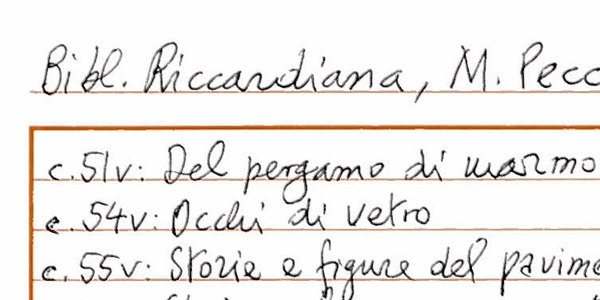 Bibl. Riccardiana, M. Pecc
c. 51v: Del pergamo di marmo
c. 54v: Occhi di vetro
c. 55v: Storie e figure del pavime